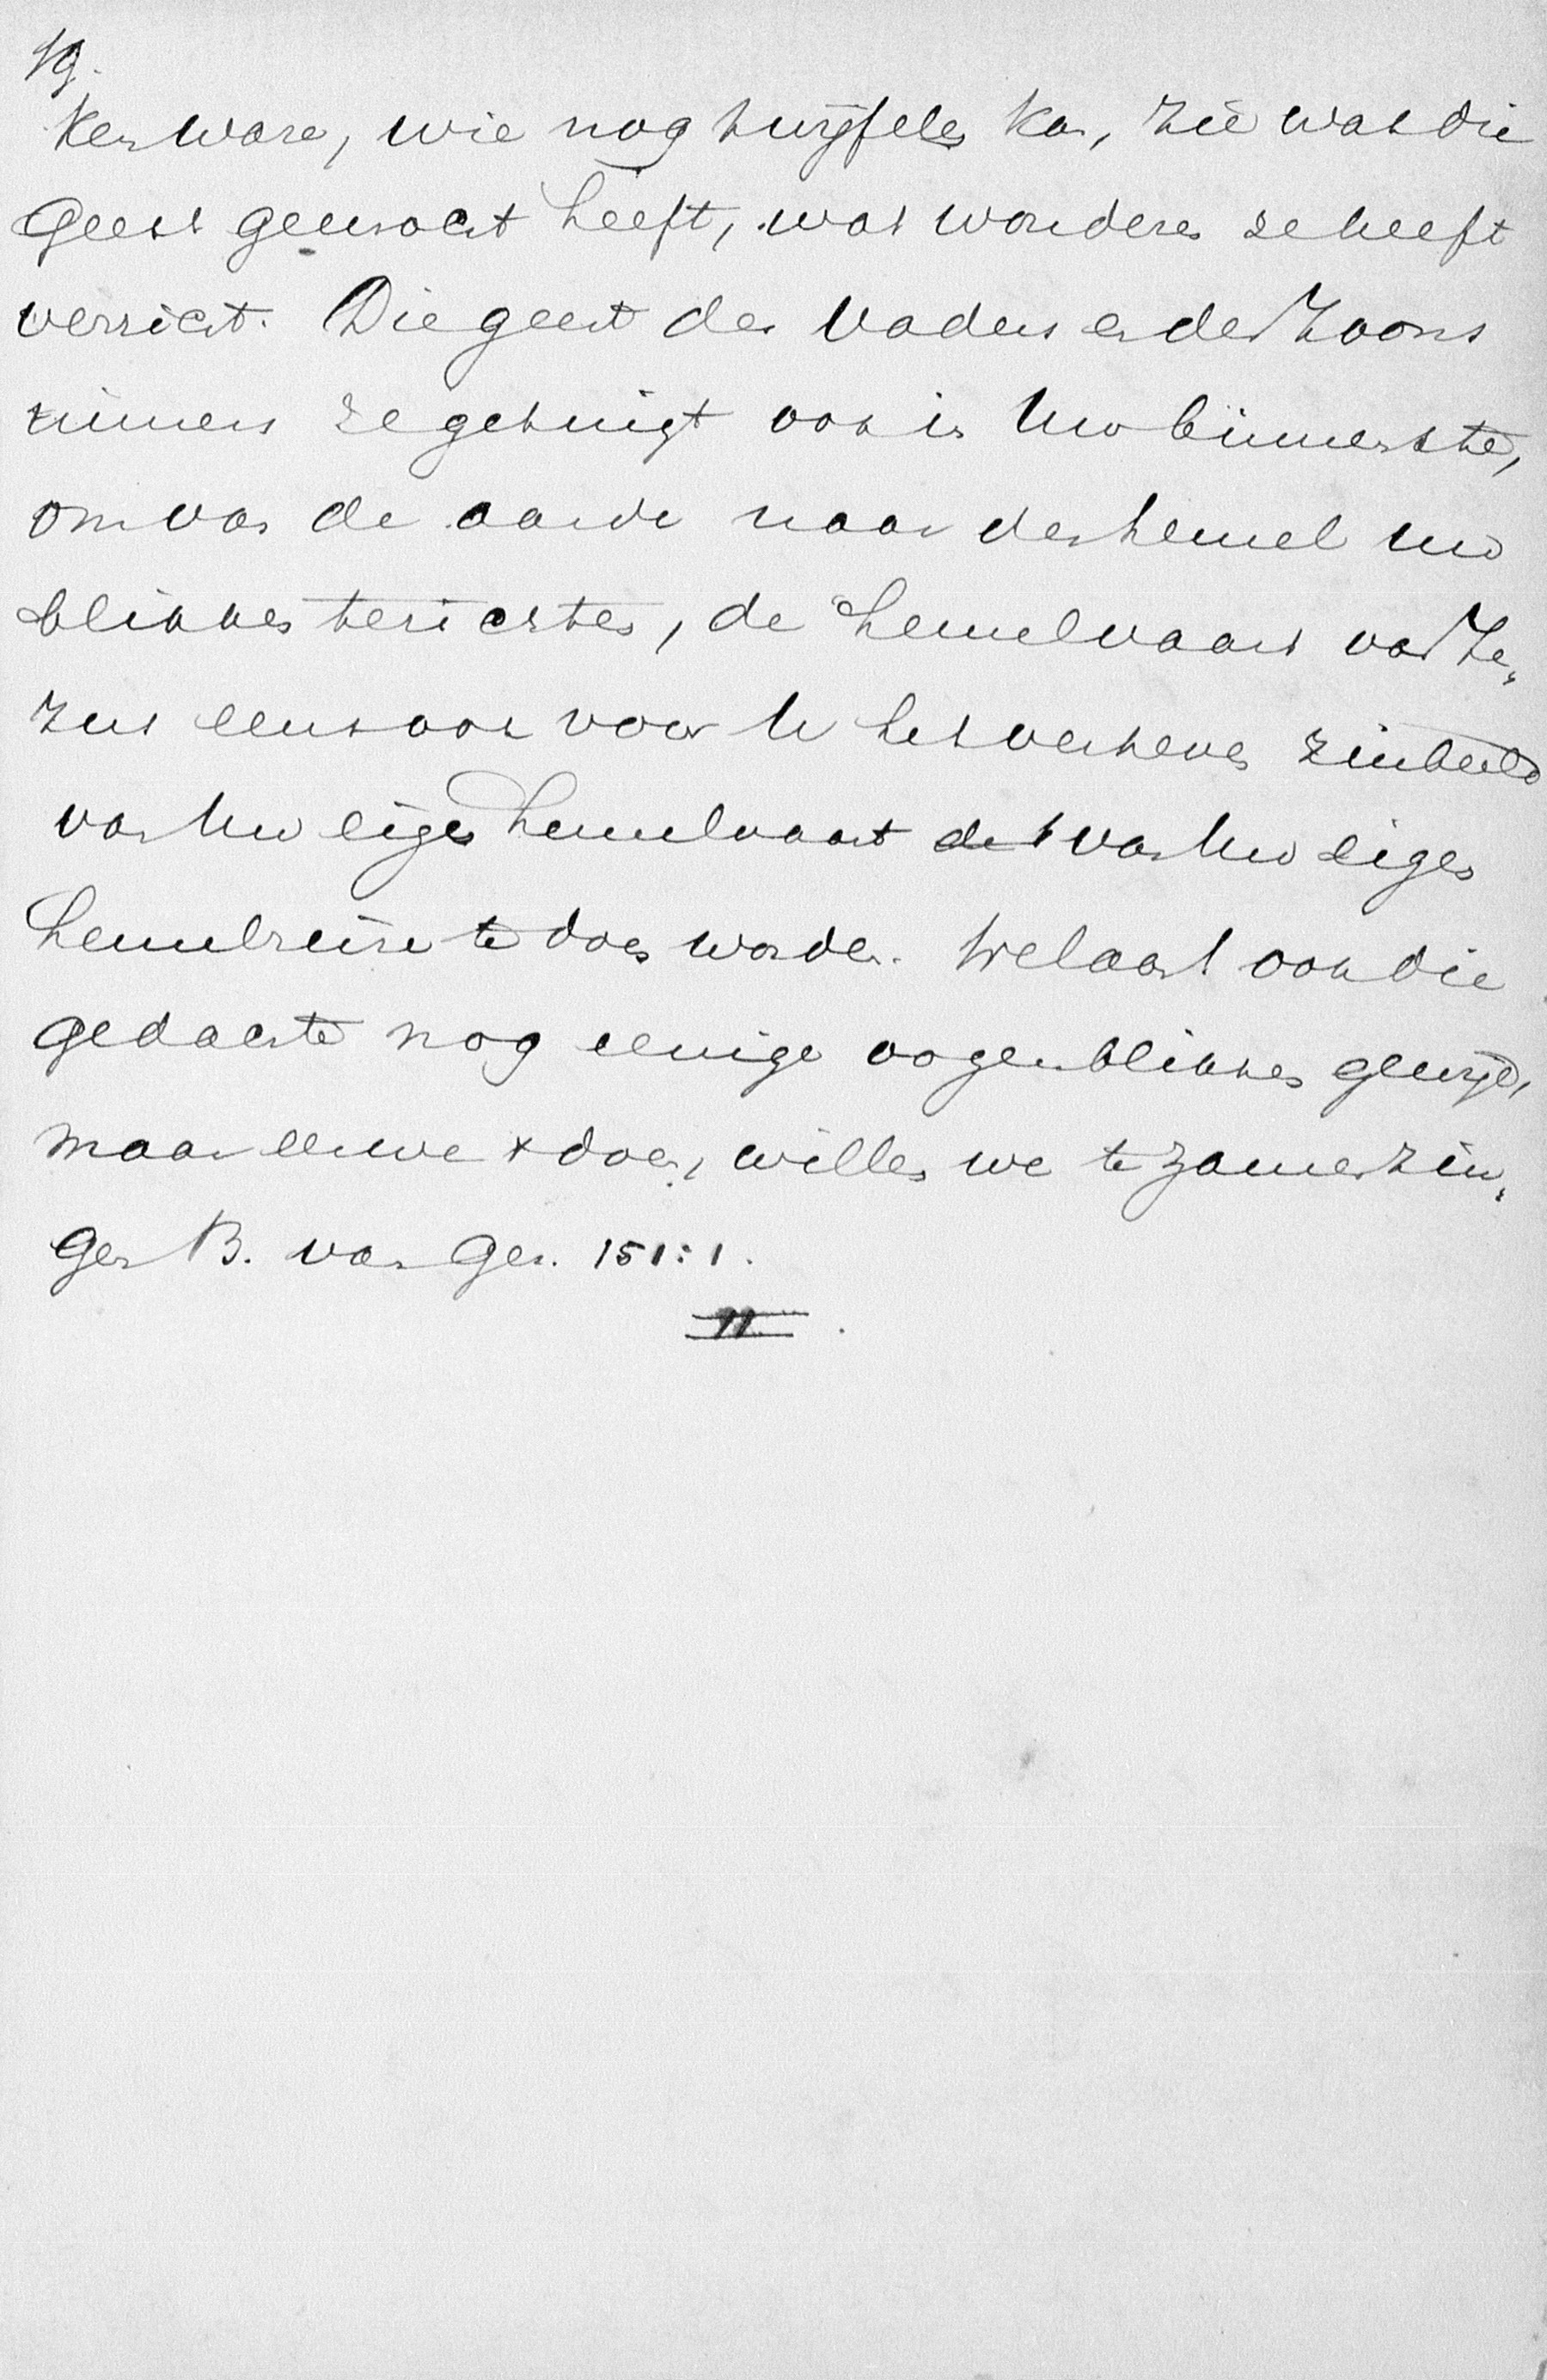 19.
ken ware, wie nog twijfelen kan, zie wat die
Geest gewrocht heeft, wat wonderen ze heeft
verricht. Die geest des Vaders en des Zoons
nimmers ze getuigt ook in Uw binnenste,
om van de aarde naar den hemel uw
blikken te richten, de hemelvaart van Je„
zus eens ook voor U het verheven zinbeeld
van Uw eigen hemelvaart van Uw eigen
hemelreize te doen worden. Welaan ook die
gedachte nog eenige oogenblikken gewijd,
maar eer we † doen, willen we te zamen zin„
gen B. van Gez. 151:1.